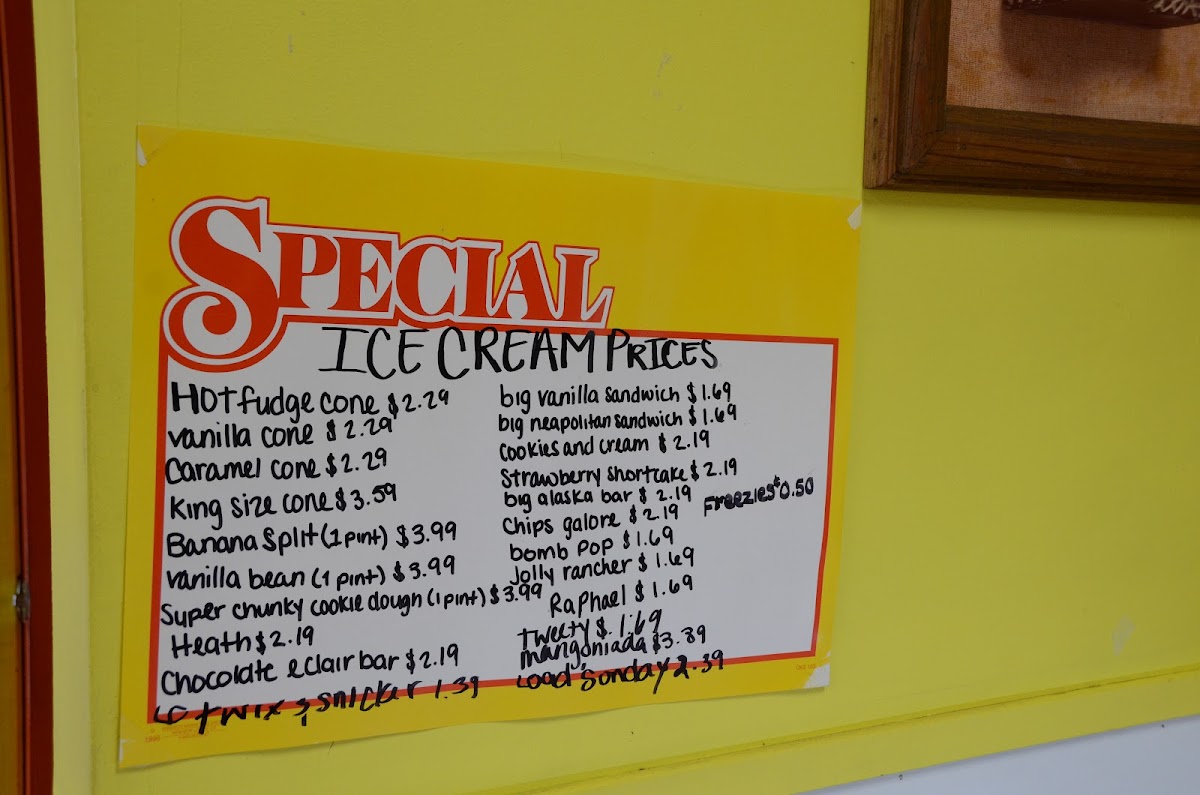 SPECIAL
ICE CREAM PRICES
HOt fudge cone $2.29
vanilla cone $2.29
Caramel cone $2.29
King size cone $3.59
Banana Split (1 pint) $3.99
vanilla bean (1 pint) $3.99
Super chunky cookie dough (1 pint) $3.99
Heath $2.19
Chocolate eclair bar $2.19
twix & snicker 1.39
big vanilla sandwich $1.69
big neapolitan sandwich $1.69
Cookies and cream $2.19
Strawberry shortcake $2.19
big alaska bar $2.19
Chips galore $2.19
bomb pop $1.69
Jolly rancher $1.69
Raphael $1.69
Tweety $.1.69
mangoniada $3.89
sonday 2.39
Freezies $0.50
1996